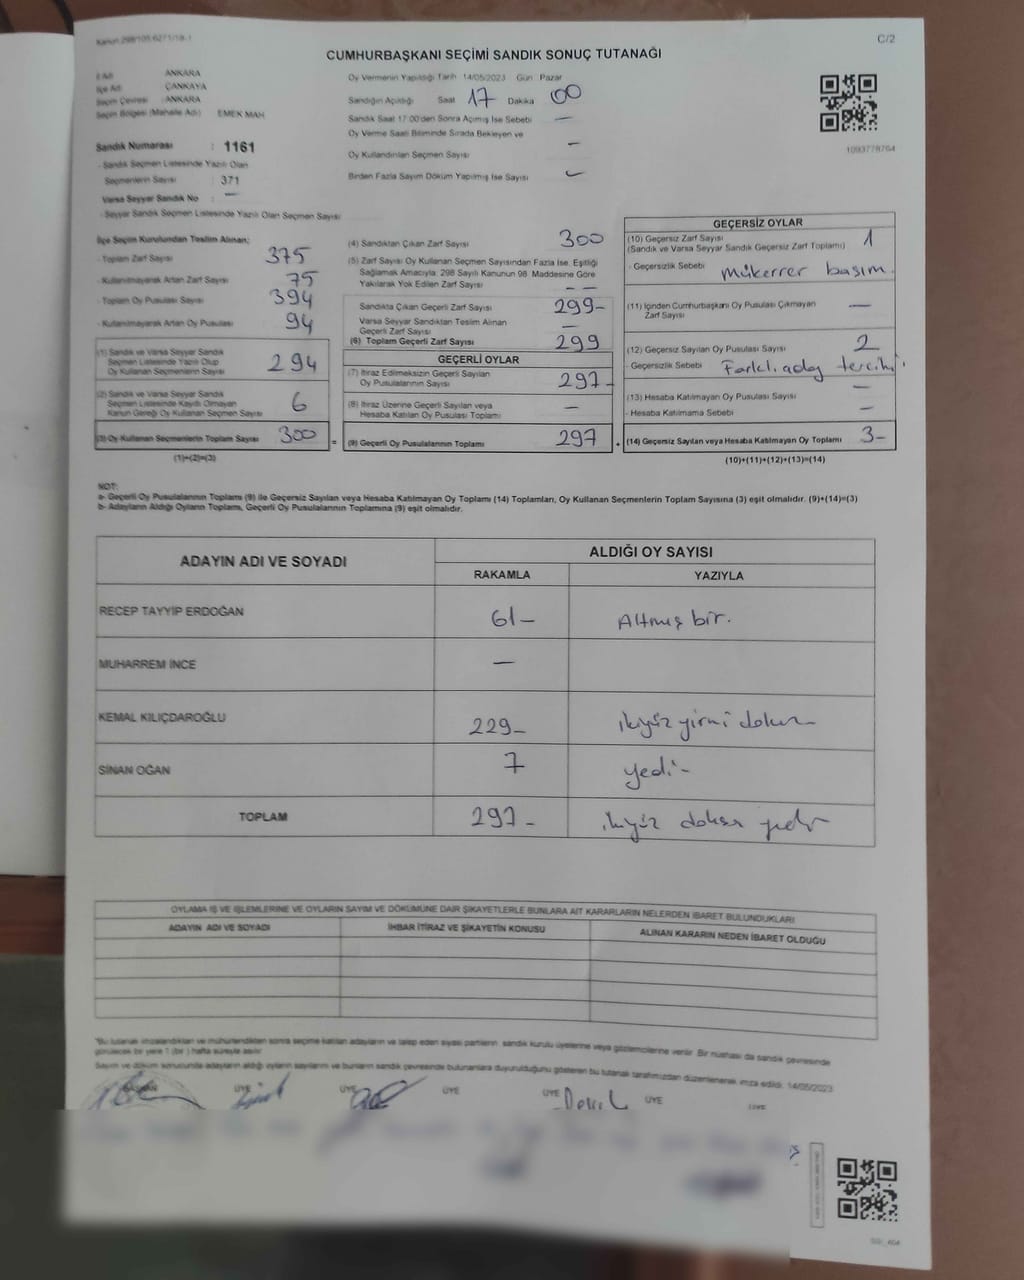 Kanun:298/105,6271/18-1
C/2
CUMHURBAŞKANI SEÇİMİ SANDIK SONUÇ TUTANAĞI
İl Adı : ANKARA
İlçe Adı : ÇANKAYA
Seçim Çevresi : ANKARA
Seçim Bölgesi (Mahalle Adı) : EMEK MAH
Sandık Numarası : 1161
- Sandık Seçmen Listesinde Yazılı Olan
Seçmenlerin Sayısı : 371
Varsa Seyyar Sandık No : —
- Seyyar Sandık Seçmen Listesinde Yazılı Olan Seçmen Sayısı
Oy Vermenin Yapıldığı Tarih 14/05/2023 Gün Pazar
Sandığın Açıldığı Saat 17 Dakika 00
Sandık Saat 17:00'den Sonra Açılmış İse Sebebi —
Oy Verme Saati Bitiminde Sırada Bekleyen ve
Oy Kullandırılan Seçmen Sayısı —
Birden Fazla Sayım Döküm Yapılmış İse Sayısı —
1093778764
İlçe Seçim Kurulundan Teslim Alınan;
- Toplam Zarf Sayısı 375
- Kullanılmayarak Artan Zarf Sayısı 75
- Toplam Oy Pusulası Sayısı 394
- Kullanılmayarak Artan Oy Pusulası 94
(1) Sandık ve Varsa Seyyar Sandık
Seçmen Listesinde Yazılı Olup
Oy Kullanan Seçmenlerin Sayısı 294
(2) Sandık ve Varsa Seyyar Sandık
Seçmen Listesinde Kaydı Olmayan
Kanun Gereği Oy Kullanan Seçmen Sayısı 6
(3) Oy Kullanan Seçmenlerin Toplam Sayısı 300 =
(1)+(2)=(3)
(4) Sandıktan Çıkan Zarf Sayısı 300
(5) Zarf Sayısı Oy Kullanan Seçmen Sayısından Fazla İse, Eşitliği
Sağlamak Amacıyla, 298 Sayılı Kanunun 98. Maddesine Göre
Yakılarak Yok Edilen Zarf Sayısı — —
Sandıkta Çıkan Geçerli Zarf Sayısı 299-
Varsa Seyyar Sandıktan Teslim Alınan
Geçerli Zarf Sayısı —
(6) Toplam Geçerli Zarf Sayısı 299
GEÇERLİ OYLAR
(7) İtiraz Edilmeksizin Geçerli Sayılan
Oy Pusulalarının Sayısı 297-
(8) İtiraz Üzerine Geçerli Sayılan veya
Hesaba Katılan Oy Pusulası Toplamı —
(9) Geçerli Oy Pusulalarının Toplamı 297 +
GEÇERSİZ OYLAR
(10) Geçersiz Zarf Sayısı 1
(Sandık ve Varsa Seyyar Sandık Geçersiz Zarf Toplamı)
- Geçersizlik Sebebi Mükerrer basım.
(11) İçinden Cumhurbaşkanı Oy Pusulası Çıkmayan —
Zarf Sayısı
(12) Geçersiz Sayılan Oy Pusulası Sayısı 2
- Geçersizlik Sebebi Farklı aday tercihi
(13) Hesaba Katılmayan Oy Pusulası Sayısı —
- Hesaba Katılmama Sebebi —
(14) Geçersiz Sayılan veya Hesaba Katılmayan Oy Toplamı 3-
(10)+(11)+(12)+(13)=(14)
NOT:
a- Geçerli Oy Pusulalarının Toplamı (9) ile Geçersiz Sayılan veya Hesaba Katılmayan Oy Toplamı (14) Toplamları, Oy Kullanan Seçmenlerin Toplam Sayısına (3) eşit olmalıdır. (9)+(14)=(3)
b- Adayların Aldığı Oyların Toplamı, Geçerli Oy Pusulalarının Toplamına (9) eşit olmalıdır.
ADAYIN ADI VE SOYADI ALDIĞI OY SAYISI
RAKAMLA YAZIYLA
RECEP TAYYİP ERDOĞAN 61- Altmış bir.
MUHARREM İNCE —
KEMAL KILIÇDAROĞLU 229- ikiyüz yirmi dokuz
SİNAN OĞAN 7 yedi-
TOPLAM 297- ikiyüz doksan yedi
OYLAMA İŞ VE İŞLEMLERİNE VE OYLARIN SAYIM VE DÖKÜMÜNE DAİR ŞİKAYETLERLE BUNLARA AİT KARARLARIN NELERDEN İBARET BULUNDUKLARI
ADAYIN ADI VE SOYADI İHBAR İTİRAZ VE ŞİKAYETİN KONUSU ALINAN KARARIN NEDEN İBARET OLDUĞU
"Bu tutanak imzalandıktan ve mühürlendikten sonra seçime katılan adayların ve talep eden siyasi partilerin sandık kurulu üyelerine veya gözlemcilerine verilir. Bir nüshası da sandık çevresinde
görülecek bir yere 1 (bir) hafta süreyle asılır.
Sayım ve döküm sonucunda adayların aldığı oyların sayılarını ve bunların sandık çevresinde bulunanlara duyurulduğunu gösteren bu tutanak tarafımızdan düzenlenerek imza edildi. 14/05/2023
BAŞKAN ÜYE ÜYE ÜYE ÜYE ÜYE ÜYE